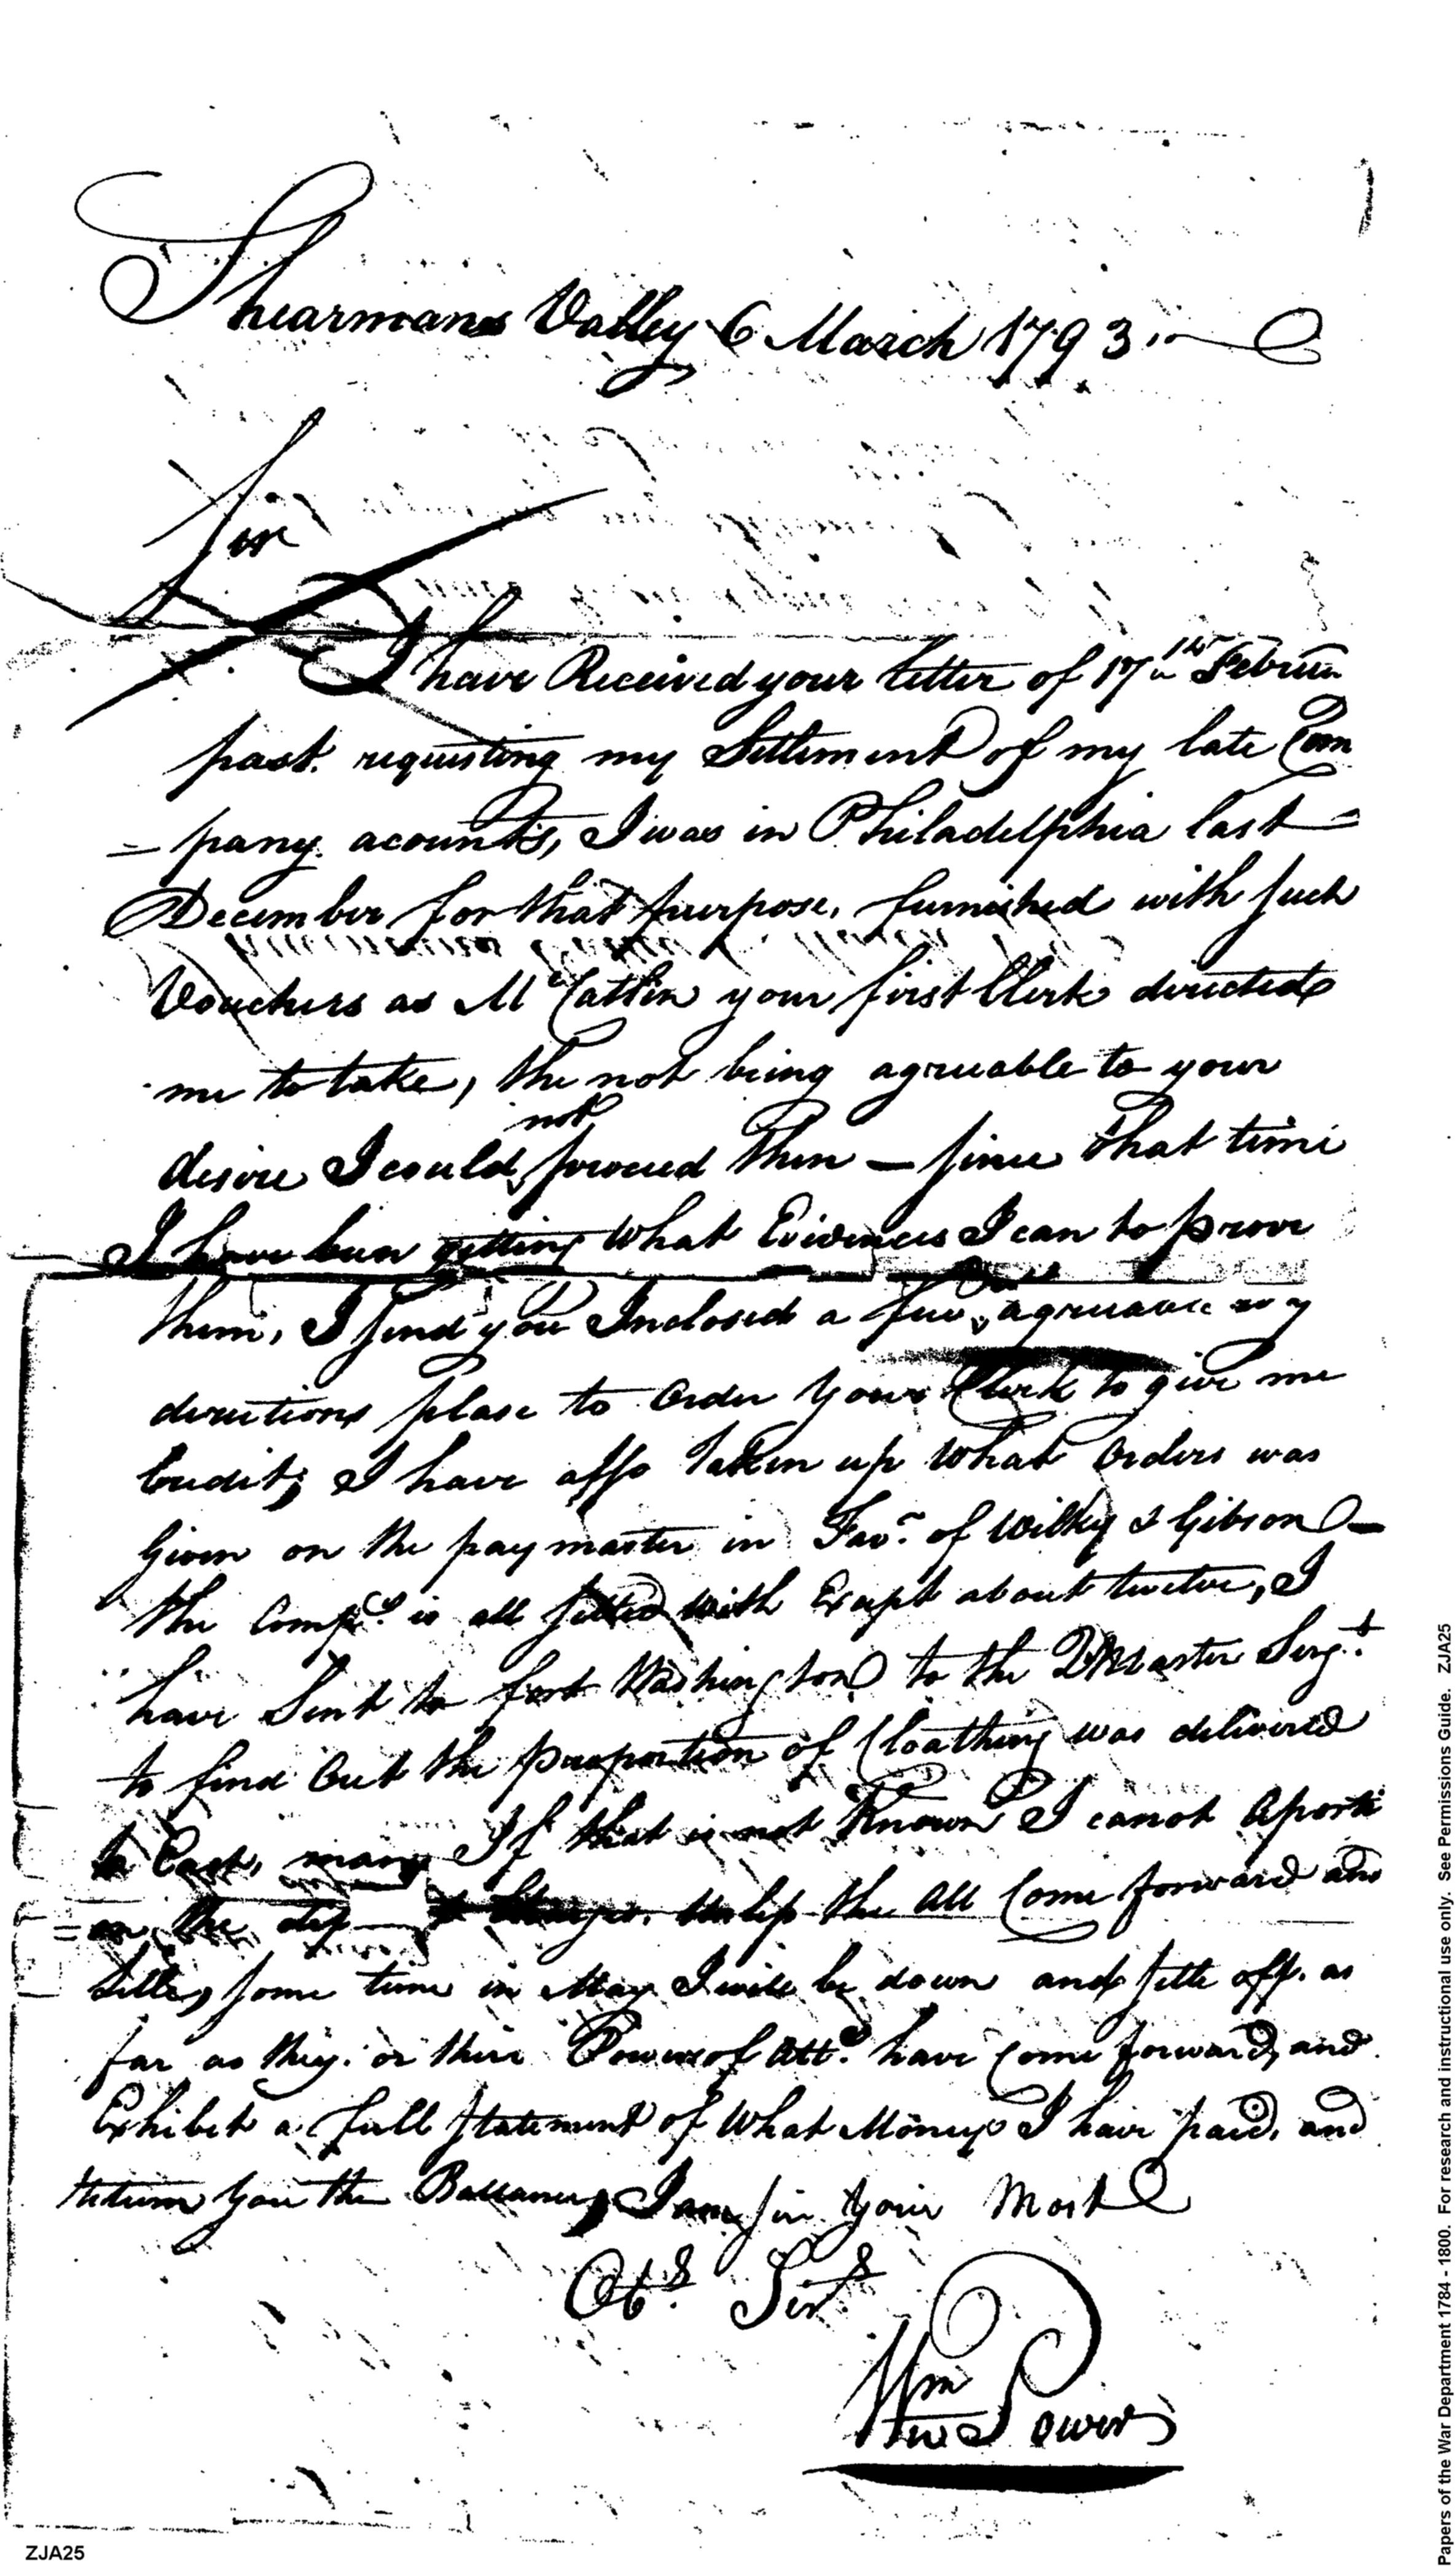 Shearmans Valley 6 March 1793.
Sir
I have Received your Letter of 17th Februa
past. requesting my Settlement of my late Com
= pany. acounts, I was in Philadelphia last =
December for that purpose, furnished with such
Vouchers as Mc Catlin your first Clerk directed
me to take, the not being agreeable to your
not
desire I could proceed then — since that time
I have been getting what Evidences I can to prove
them, I send you Inclosed a few agreeable to y
directions please to order your Clerk to give me
Credit; I have also taken up what orders was
Given on the paymaster in Favr. of Wilky & Gibson —
the Compy. is all settled with Except about twelve, I
have Sent to fort Washington to the QMaster Sergt.
to find out the proportion of Cloathing was delivered
to Each, man, If that is not Known I canot aporti
= on the Unless the all Come forward and
Settle, some time in May I will be down and settle off. as
far as they. or their Powers of Atty. have come forward, and
Exhibet a full statement of what Moneys I have paid, and
Return you the Ballance, I am sir your Most
Obt. Sert.
Wm Power
ZJA25
Papers of the War Department 1784 - 1800. For research and instructional use only. See Permissions Guide. ZJA25